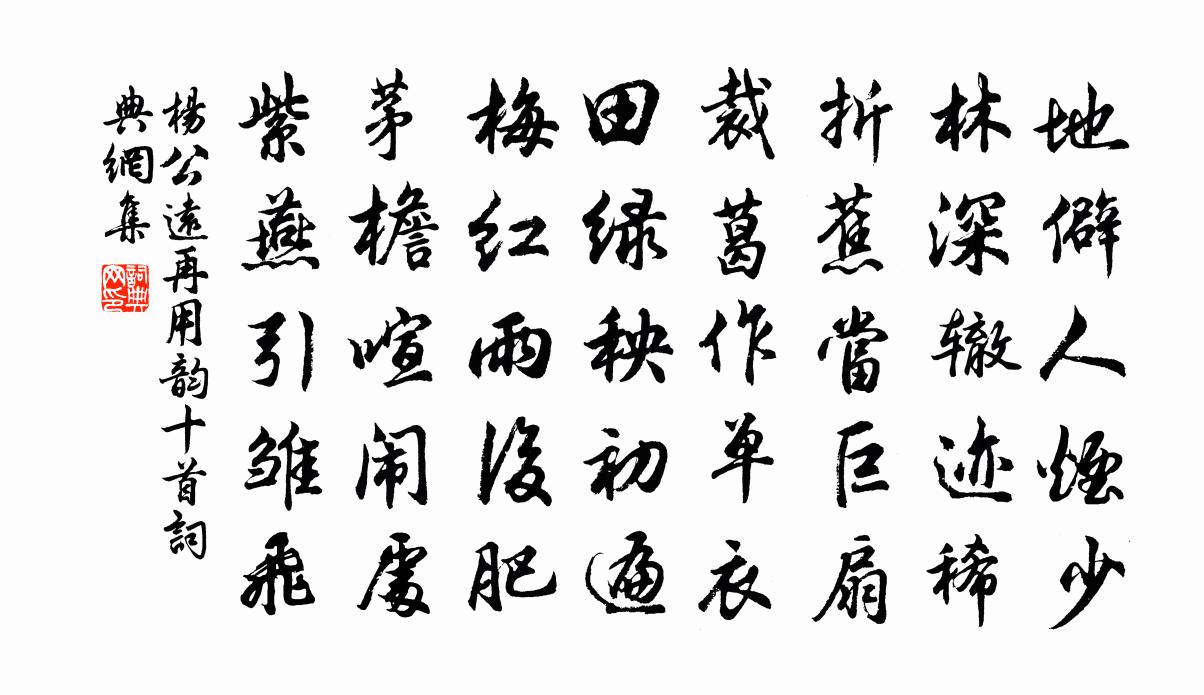 地僻人煙少
林深辙迹稀
折蕉當巨扇
裁葛作单衣
田绿秧初遍
梅红雨後肥
茅檐喧闹處
紫燕引雏飛
楊公遠再用韵十首詞
典網集
詞典
网印